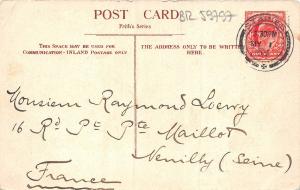 POST CARD
BR 59797
Frith's Series
THIS SPACE MAY BE USED FOR
COMMUNICATION - INLAND POSTAGE ONLY
THE ADDRESS ONLY TO BE WRITTEN
HERE.
Monsieur Raymond Loewy
16 Rd Pt Pte
Maillot
Neuilly (Seine)
France